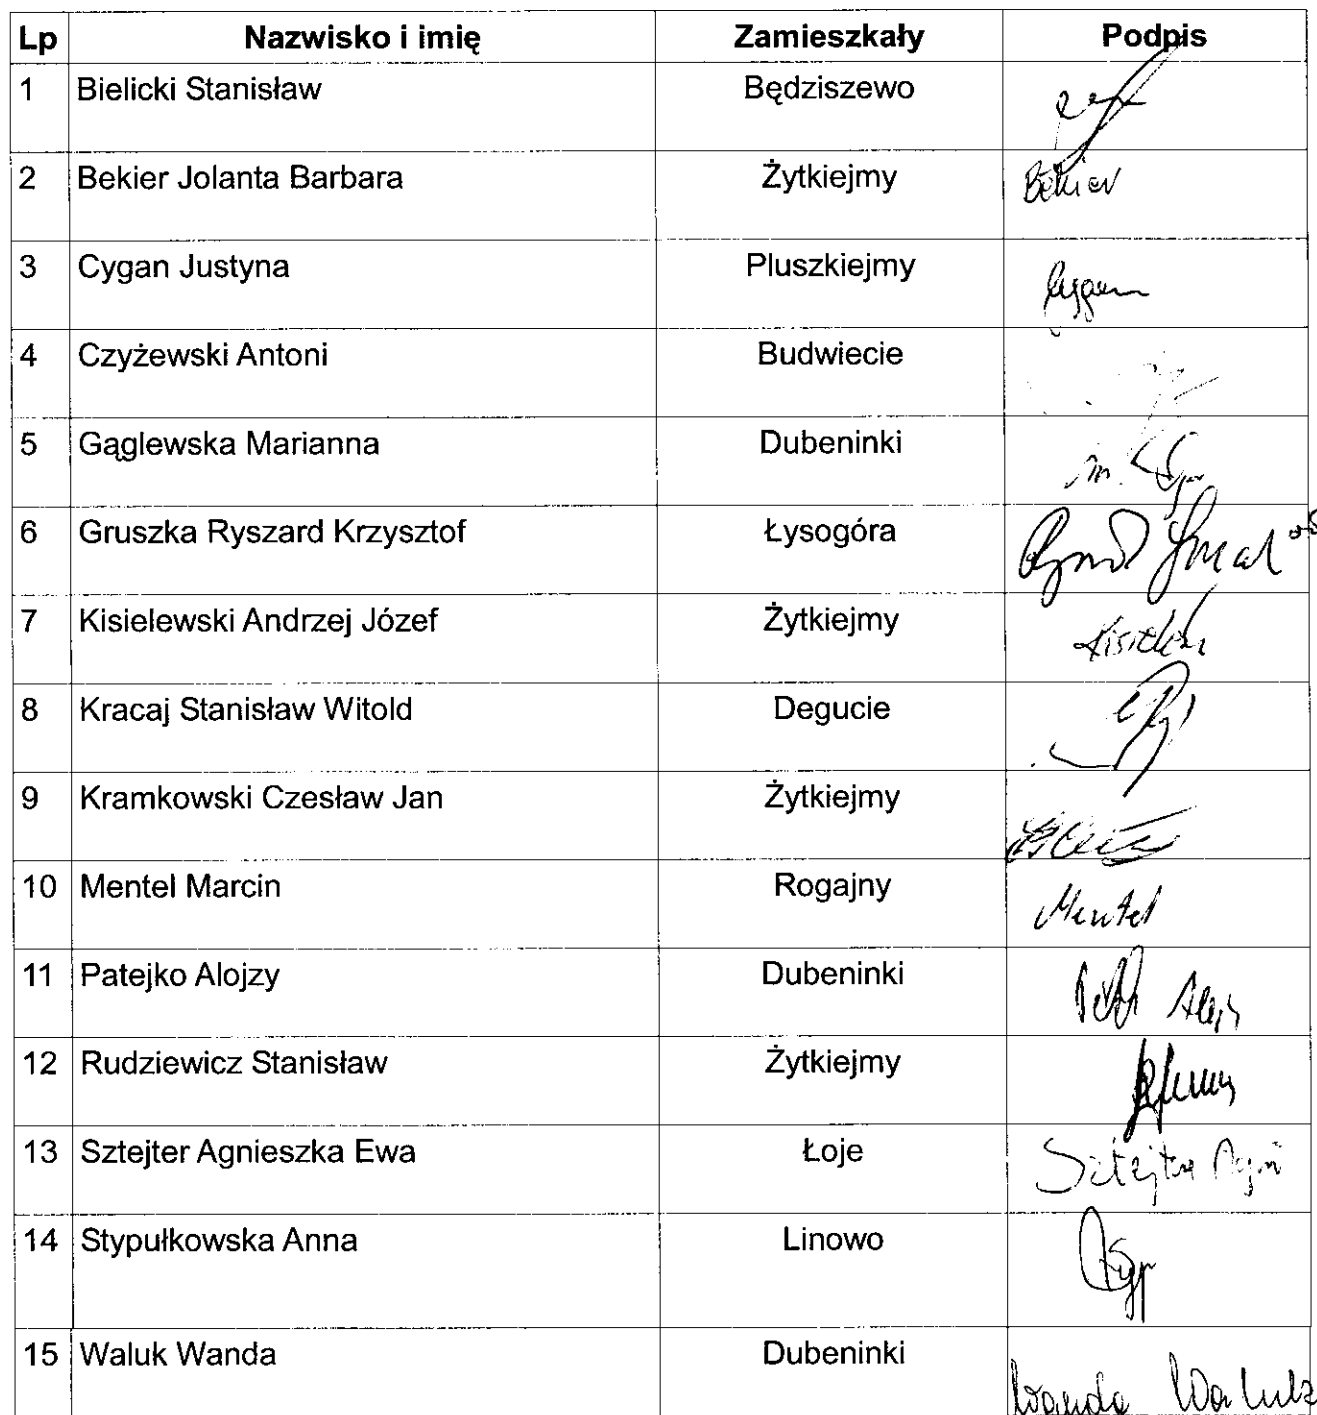 Lp Nazwisko i imię Zamieszkały Podpis
1 Bielicki Stanisław Będziszewo
2 Bekier Jolanta Barbara Żytkiejmy Bekier
3 Cygan Justyna Pluszkiejmy Cygan
4 Czyżewski Antoni Budwiecie
5 Gąglewska Marianna Dubeninki
6 Gruszka Ryszard Krzysztof Łysogóra
7 Kisielewski Andrzej Józef Żytkiejmy
8 Kracaj Stanisław Witold Degucie
9 Kramkowski Czesław Jan Żytkiejmy
10 Mentel Marcin Rogajny Mentel
11 Patejko Alojzy Dubeninki
12 Rudziewicz Stanisław Żytkiejmy
13 Sztejter Agnieszka Ewa Łoje Sztejter
14 Stypułkowska Anna Linowo
15 Waluk Wanda Dubeninki Wanda Waluk